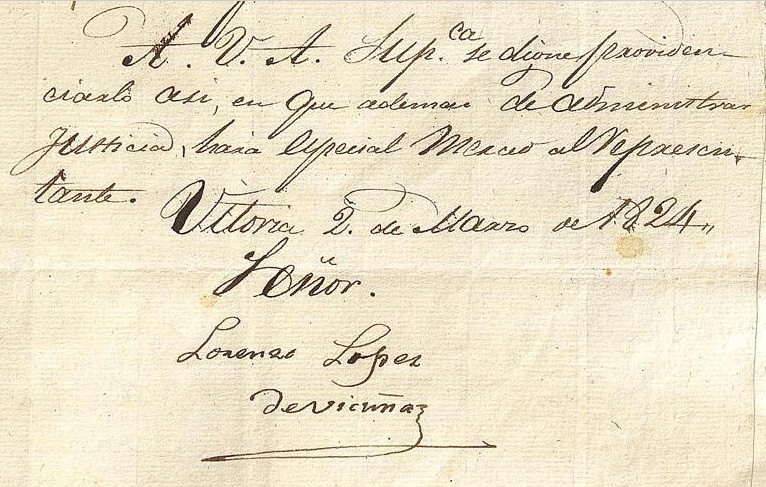 A. V. A. Sup.ca se digne providen-
ciarlo asi, en que ademas de administrar
Justicia, hará especial Merced al Represen-
tante.
Vitoria 2. de Marzo de 1824,,
Señor.
Lorenzo Lopez
de vicuña